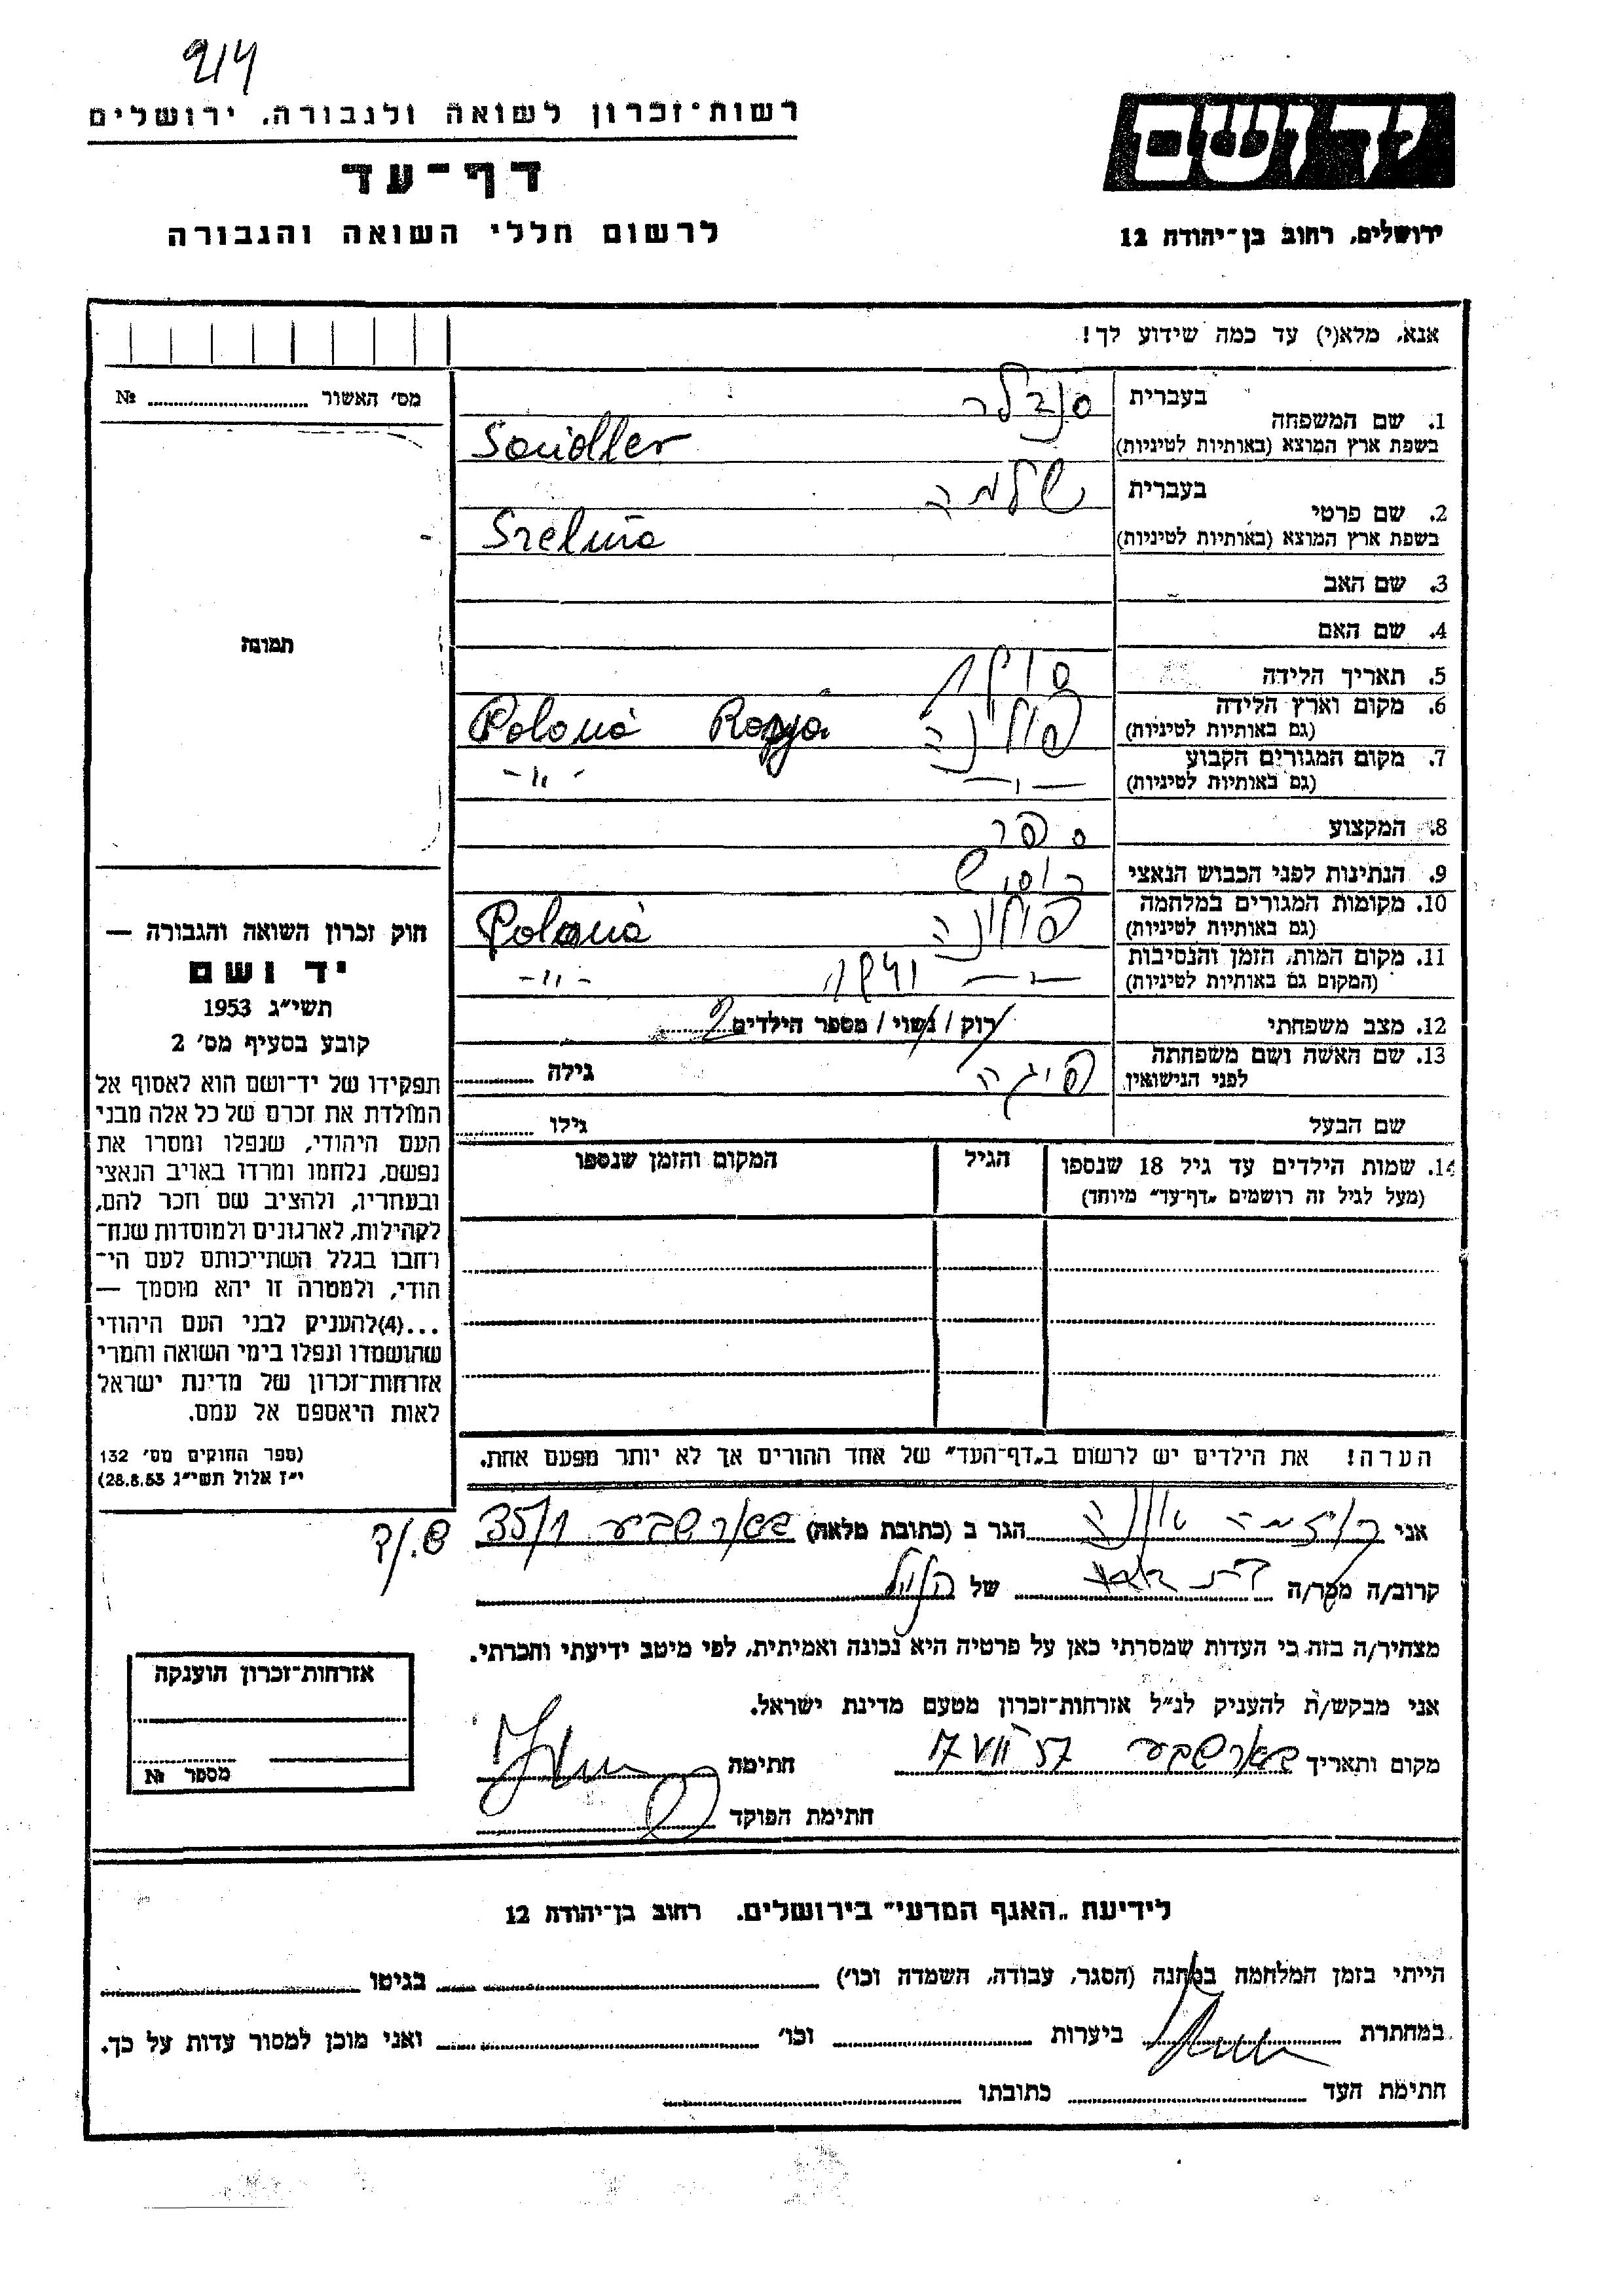 914
רשות־זכרון לשואה ולגבורה, ירושלים
דף־עד
לרשום חללי השואה והגבורה
יד ושם
ירושלים, רחוב בן־יהודה 12
אנא, מלא(י) עד כמה שידוע לך!
מס׳ האשור № 
1. שם המשפחה
בעברית סנדלר
בשפת ארץ המוצא (באותיות לטיניות) Sandler
2. שם פרטי
בעברית שלמה
בשפת ארץ המוצא (באותיות לטיניות)
3. שם האב
4. שם האם
5. תאריך הלידה
6. מקום וארץ הלידה
(גם באותיות לטיניות) Poloná
7. מקום המגורים הקבוע
(גם באותיות לטיניות) -"-
8. המקצוע ספר
9. הנתינות לפני הכבוש הנאצי
10. מקומות המגורים במלחמה
(גם באותיות לטיניות) Poloná
11. מקום המות, הזמן והנסיבות
(המקום גם באותיות לטיניות) 1941 -"-
12. מצב משפחתי רוק / נשוי / מספר הילדים 2
13. שם האשה ושם משפחתה
לפני הנישואין פייגה גילה
שם הבעל גילו
14. שמות הילדים עד גיל 18 שנספו
(מעל לגיל זה רושמים „דף־עד״ מיוחד)
הגיל
המקום והזמן שנספו
הערה! את הילדים יש לרשום ב„דף־העד״ של אחד ההורים אך לא יותר מפעם אחת.
תמונה
חוק זכרון השואה והגבורה —
יד ושם
תשי״ג 1953
קובע בסעיף מס׳ 2
תפקידו של יד־ושם הוא לאסוף אל
המולדת את זכרם של כל אלה מבני
העם היהודי, שנפלו ומסרו את
נפשם, נלחמו ומרדו באויב הנאצי
ובעוזריו, ולהציב שם וזכר להם,
לקהילות, לארגונים ולמוסדות שנח־
רחבו בגלל השתייכותם לעם הי־
הודי, ולמטרה זו יהא מוסמך —
...(4)להעניק לבני העם היהודי
שהושמדו ונפלו בימי השואה והמרי
אזרחות־זכרון של מדינת ישראל
לאות היאספם אל עמם.
(ספר החוקים מס׳ 132
י״ז אלול תשי״ג 28.8.53)
אני הגר ב (כתובת מלאה) באר שבע 35/1
קרוב/ה מכר/ה של הנ״ל
מצהיר/ה בזה כי העדות שמסרתי כאן על פרטיה היא נכונה ואמיתית, לפי מיטב ידיעתי והכרתי.
אני מבקש/ת להעניק לנ״ל אזרחות־זכרון מטעם מדינת ישראל.
מקום ותאריך באר שבע 17 VII 57 חתימה
חתימת הפוקד
אזרחות־זכרון הוענקה
מספר №
לידיעת „האגף המדעי״ בירושלים, רחוב בן־יהודה 12
הייתי בזמן המלחמה במחנה (הסגר, עבודה, השמדה וכו׳) בגיטו
במחתרת ביערות וכו׳ ואני מוכן למסור עדות על כך.
חתימת העד כתובתו